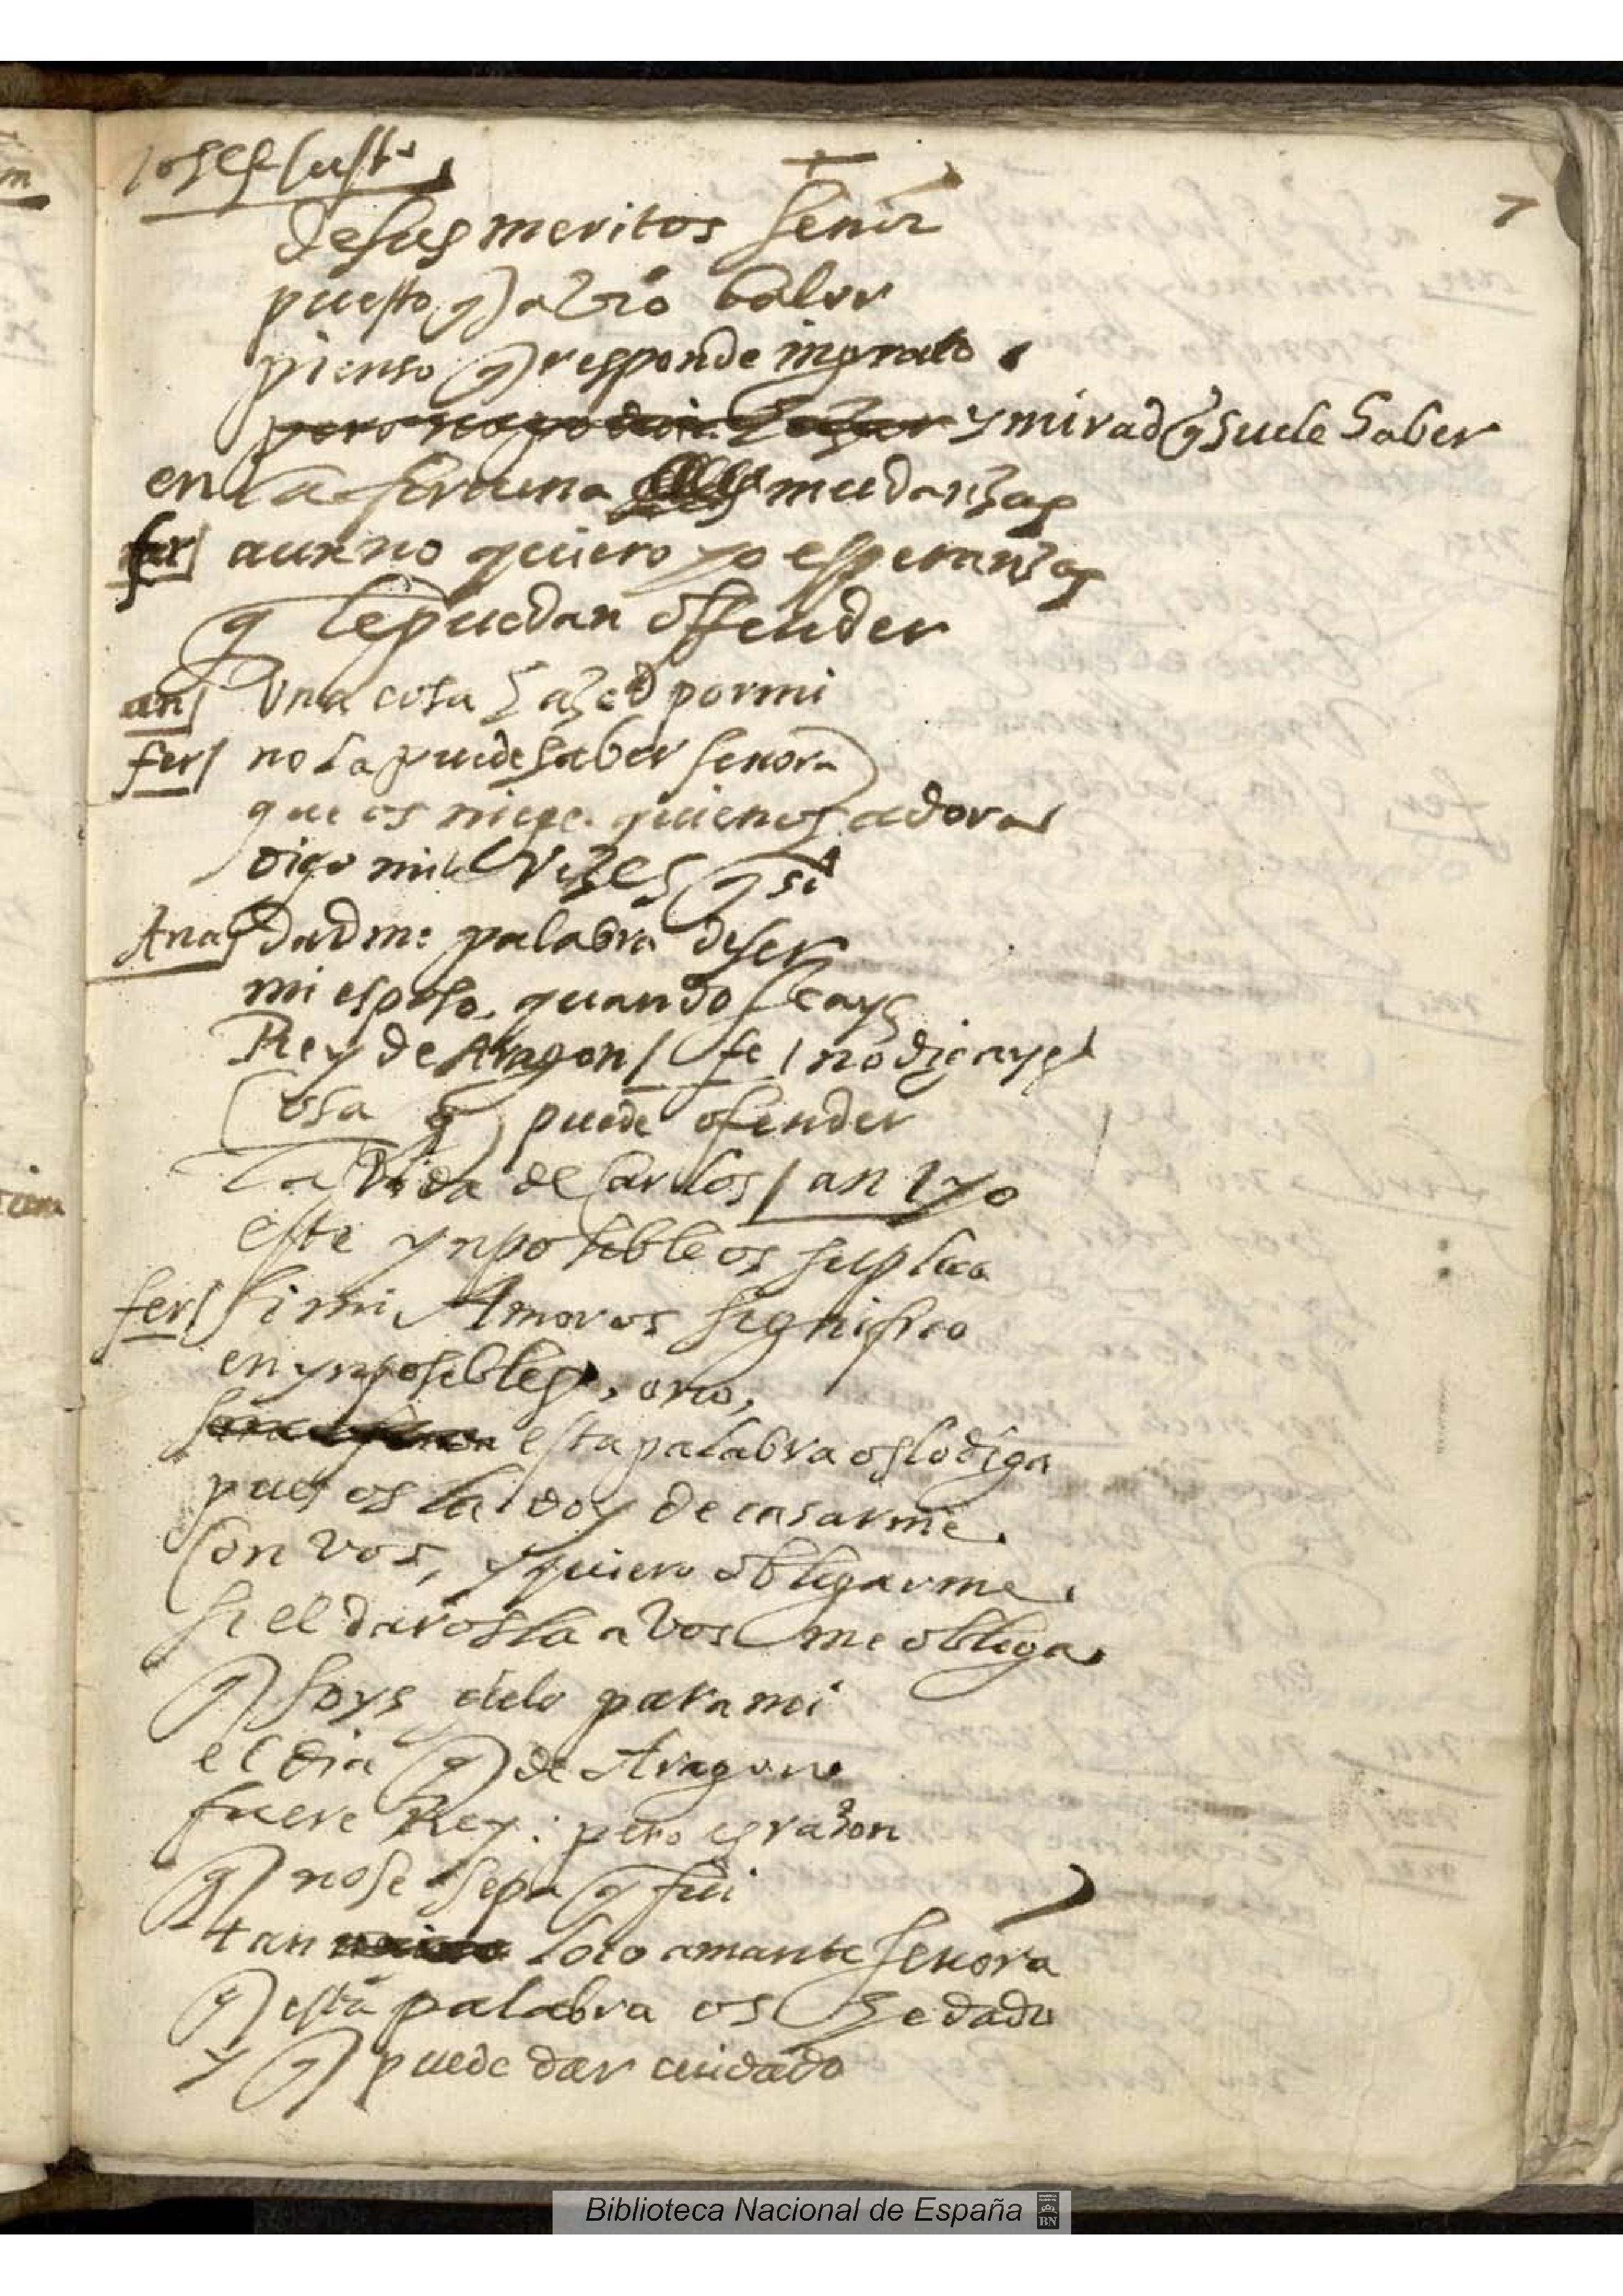 7
de sus meritos señor
puesto q a vro balor
pienso q responde ingrato
y mirad q suele haber
en la fortuna mudanzas
fer aun no quiero yo esperanzas
q le puedan offender
an vna cosa hazed por mi
fer no la puede haber señora
que os niege quien os adora
digo mil vezes q si
Ana dadme palabra de ser
mi esposo quando seays
Rey de Aragon / fe / no digays
cosa q puede ofender
la vida de Carlos / an / yo
este ynposible os suplico
fer si mi Amor os significo
en ynposibles
esta palabra os lo diga
pues os la doy de casarme
con vos, y quiero obligarme
si el darosla a vos me obliga
q soys cielo para mi
el dia q de Aragon
fuere Rey: pero es razon
q no se sepa q fui
tan loco amante señora
q esta palabra os he dado
y q puede dar cuidado
Biblioteca Nacional de España
BN